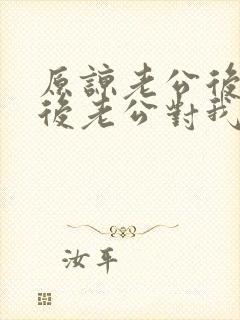 原諒老公後
後老公對我
汝平